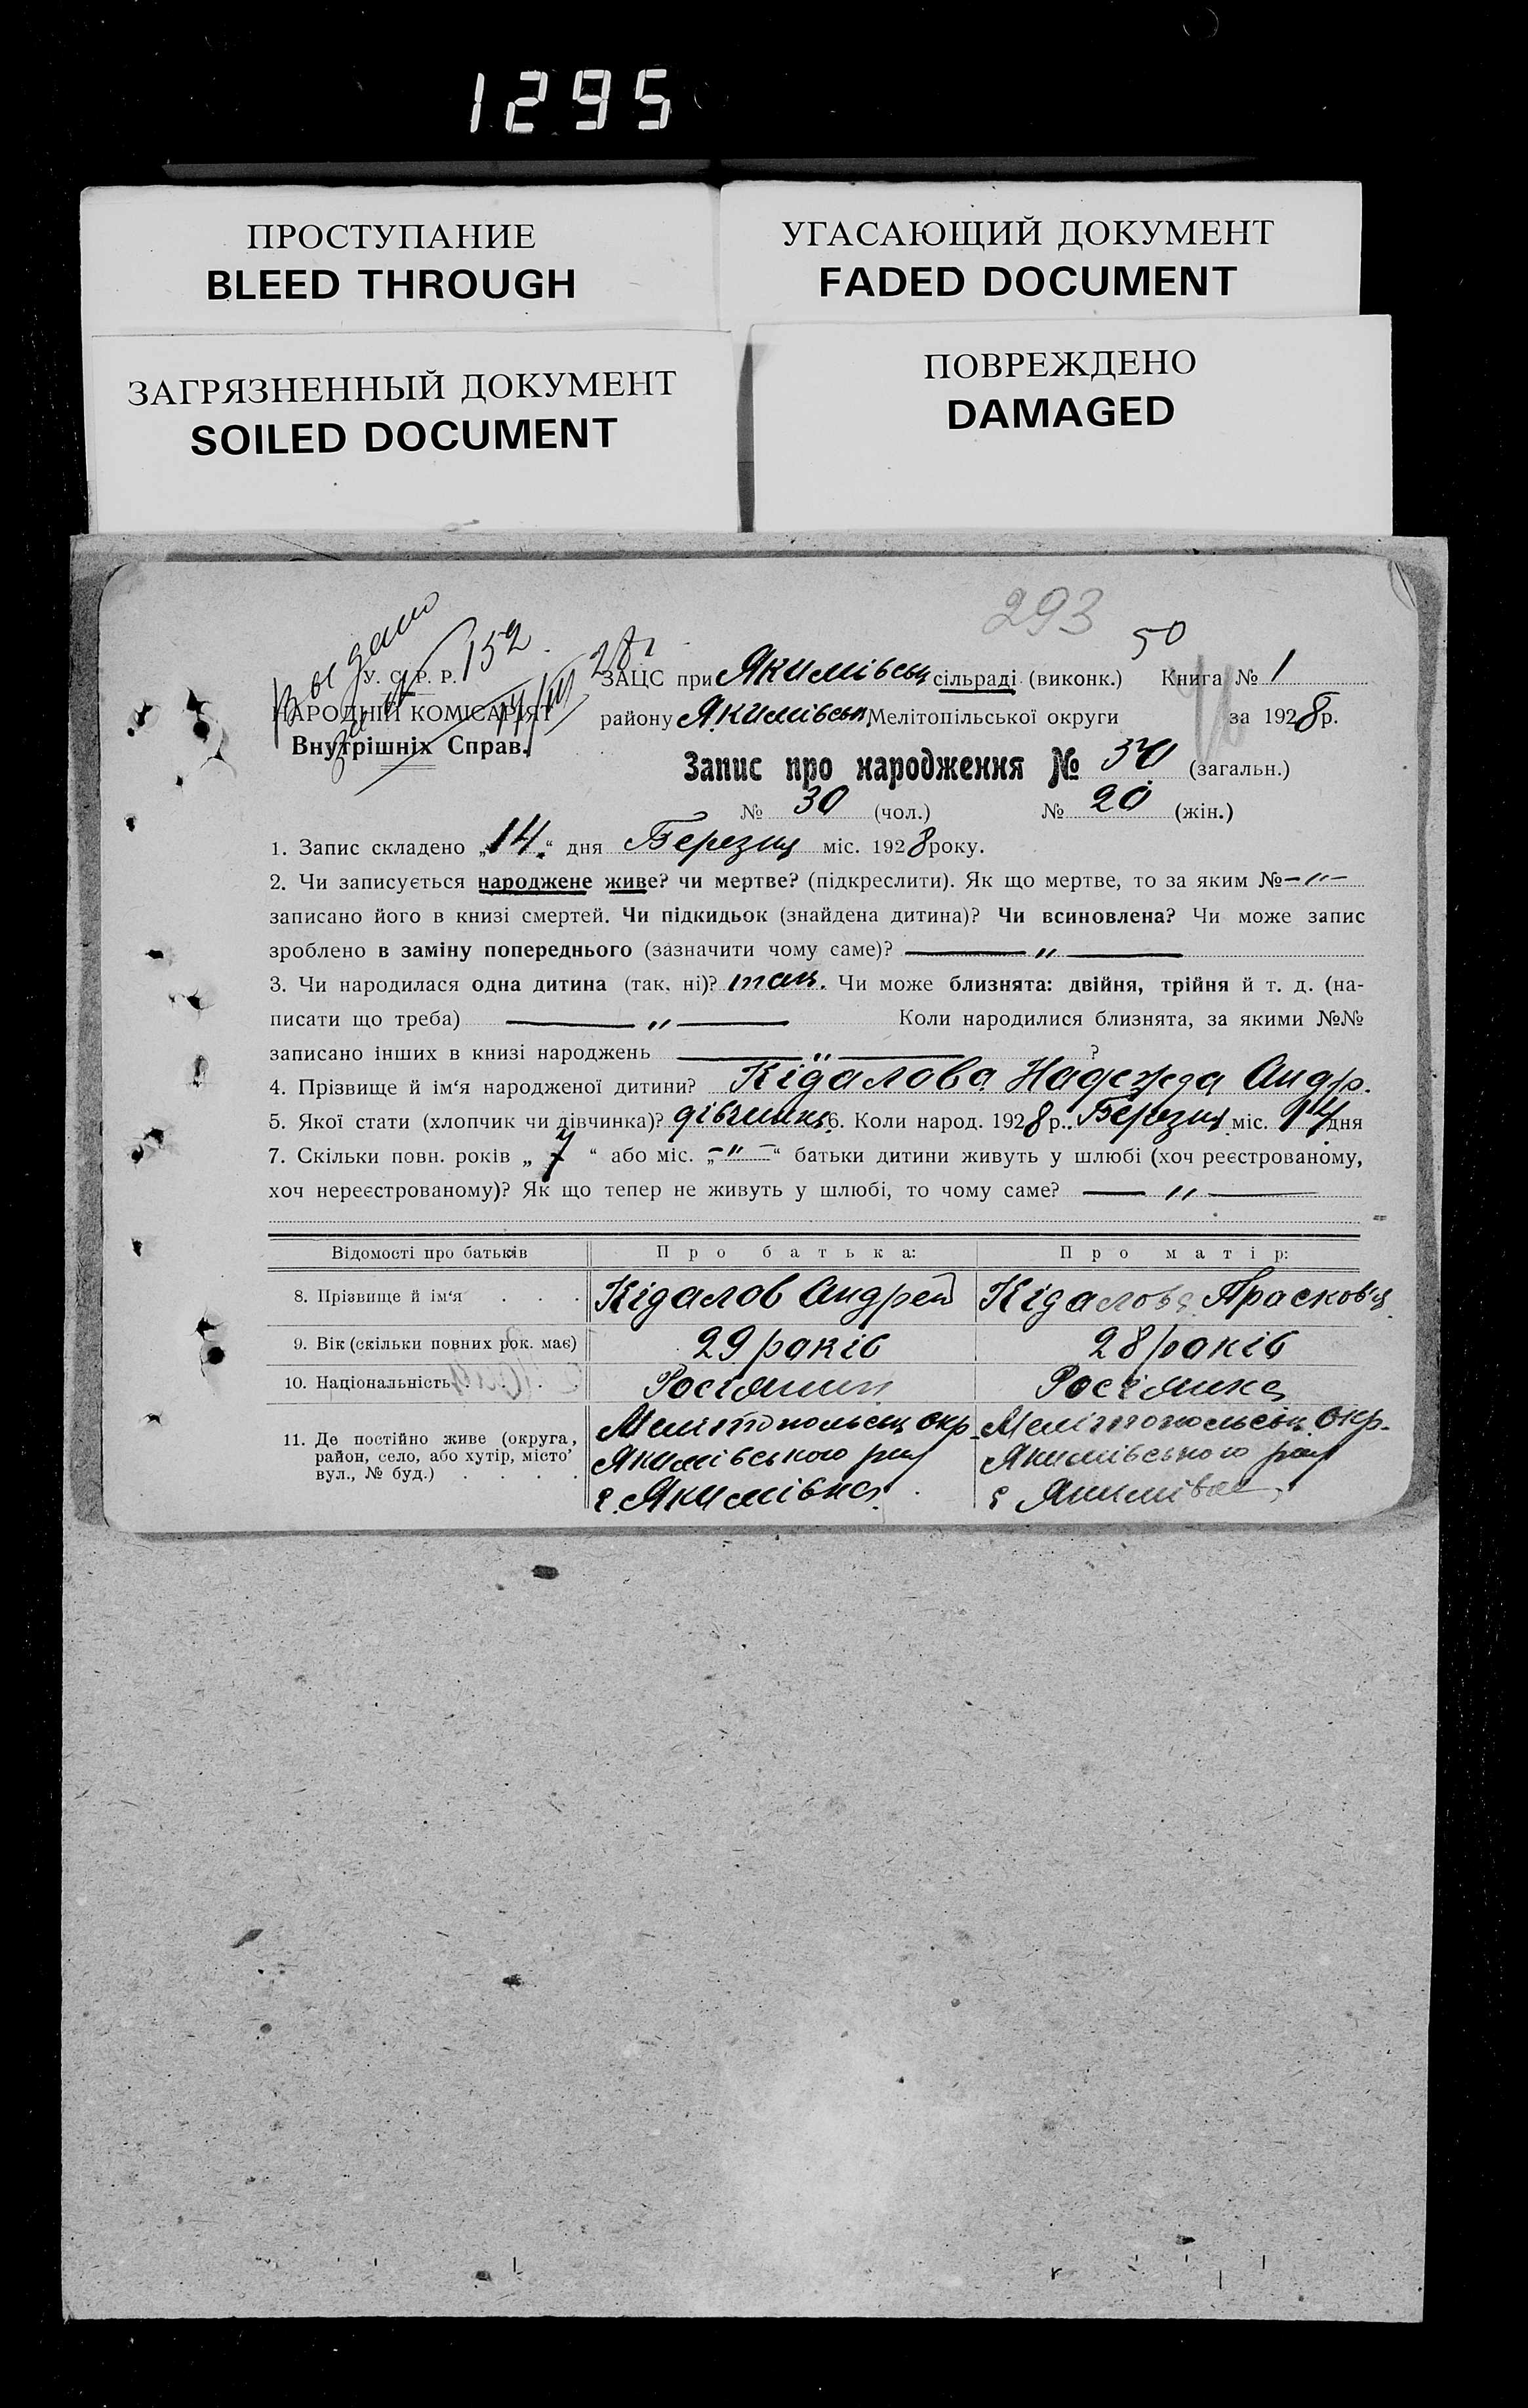 1295
ПРОСТУПАНИЕ
BLEED THROUGH
УГАСАЮЩИЙ ДОКУМЕНТ
FADED DOCUMENT
ЗАГРЯЗНЕННЫЙ ДОКУМЕНТ
SOILED DOCUMENT
ПОВРЕЖДЕНО
DAMAGED
293
50
Выдано
152
28г
У. С. Р. Р.
НАРОДНІЙ КОМІСАРІЯТ
Внутрішніх Справ.
ЗАЦС при Якимівськ сільраді (виконк.) Книга № 1
району Якимівськ Мелітопільської округи за 1928р.
Запис про народження № 50 (загальн.)
№ 30 (чол.) № 20 (жін.)
1. Запис складено „14“ дня Березня міс. 1928 року.
2. Чи записується народжене живе? чи мертве? (підкреслити). Як що мертве, то за яким № –"–
записано його в книзі смертей. Чи підкидьок (знайдена дитина)? Чи всиновлена? Чи може запис
зроблено в заміну попереднього (зазначити чому саме)? — " —
3. Чи народилася одна дитина (так, ні)? так. Чи може близнята: двійня, трійня й т. д. (на-
писати що треба) — " — Коли народилися близнята, за якими №№
записано інших в книзі народжень — " — ?
4. Прізвище й ім‘я народженої дитини? Кідалова Надежда Андр.
5. Якої стати (хлопчик чи дівчинка)? дівчинка 6. Коли народ. 1928 р. Березня міс. 14 дня
7. Скільки повн. років „ 7 “ або міс. „–"–“ батьки дитини живуть у шлюбі (хоч реєстрованому,
хоч нереєстрованому)? Як що тепер не живуть у шлюбі, то чому саме? — " —
Відомості про батьків Про батька: Про матір:
8. Прізвище й ім‘я . . . Кідалов Андрей Кідалова Прасков'я
9. Вік (скільки повних рок. має) 29 років 28 років
10. Національність . . . . Росіянин Росіянка
11. Де постійно живе (округа,
район, село, або хутір, місто’
вул., № буд.) . . . .
Мелітопольськ окр.
Якимівського рай
с. Якимівка
Мелітопольськ окр.
Якимівського рай
с Якимівка